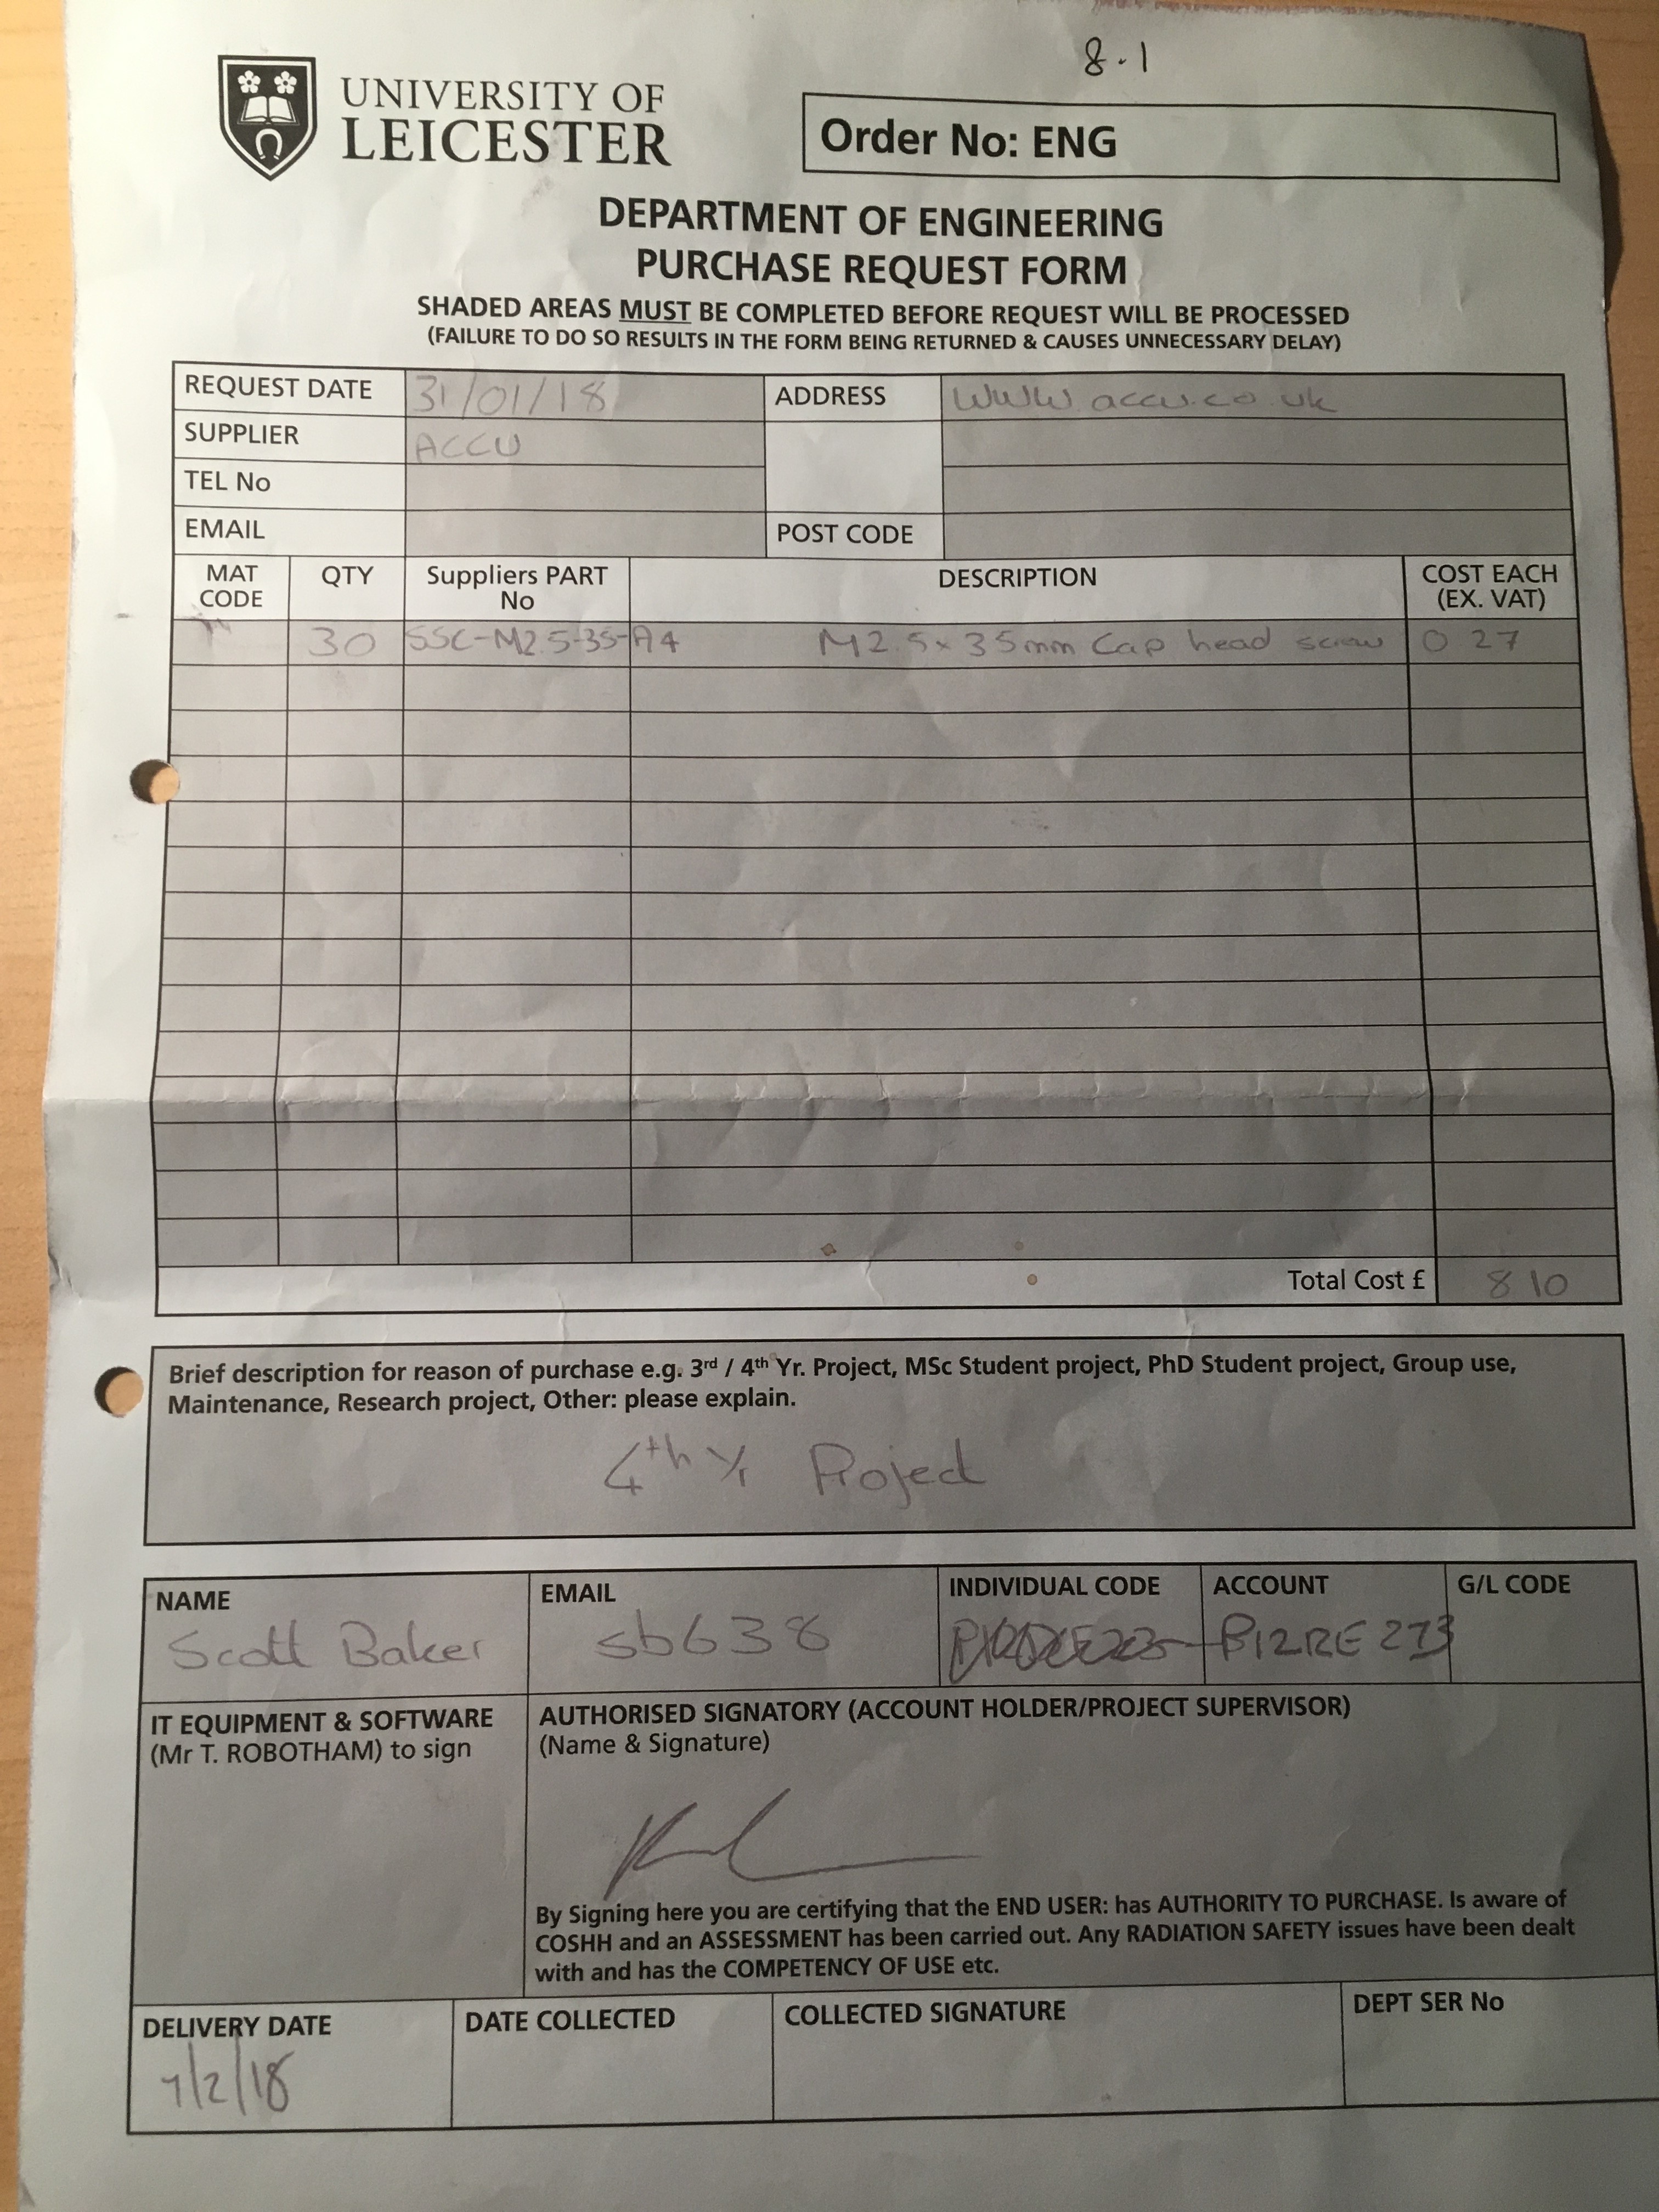 8.1
UNIVERSITY OF
LEICESTER
Order No: ENG
DEPARTMENT OF ENGINEERING
PURCHASE REQUEST FORM
SHADED AREAS MUST BE COMPLETED BEFORE REQUEST WILL BE PROCESSED
(FAILURE TO DO SO RESULTS IN THE FORM BEING RETURNED & CAUSES UNNECESSARY DELAY)
REQUEST DATE 31/01/18 ADDRESS www.accu.co.uk
SUPPLIER ACCU
TEL No
EMAIL POST CODE
MAT CODE QTY Suppliers PART No DESCRIPTION COST EACH (EX. VAT)
30 SSC-M2.5-35-A4 M2.5x35mm Cap head screw 0 27
Total Cost £ 8 10
Brief description for reason of purchase e.g. 3rd / 4th Yr. Project, MSc Student project, PhD Student project, Group use,
Maintenance, Research project, Other: please explain.
4th Yr Project
NAME EMAIL INDIVIDUAL CODE ACCOUNT G/L CODE
Scott Baker sb638 P12RE273
IT EQUIPMENT & SOFTWARE
(Mr T. ROBOTHAM) to sign
AUTHORISED SIGNATORY (ACCOUNT HOLDER/PROJECT SUPERVISOR)
(Name & Signature)
By Signing here you are certifying that the END USER: has AUTHORITY TO PURCHASE. Is aware of
COSHH and an ASSESSMENT has been carried out. Any RADIATION SAFETY issues have been dealt
with and has the COMPETENCY OF USE etc.
DELIVERY DATE DATE COLLECTED COLLECTED SIGNATURE DEPT SER No
7/2/18